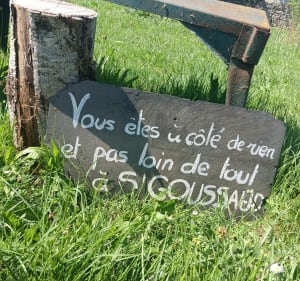 Vous êtes à côté de rien
et pas loin de tout
à S'GOUSSAUD